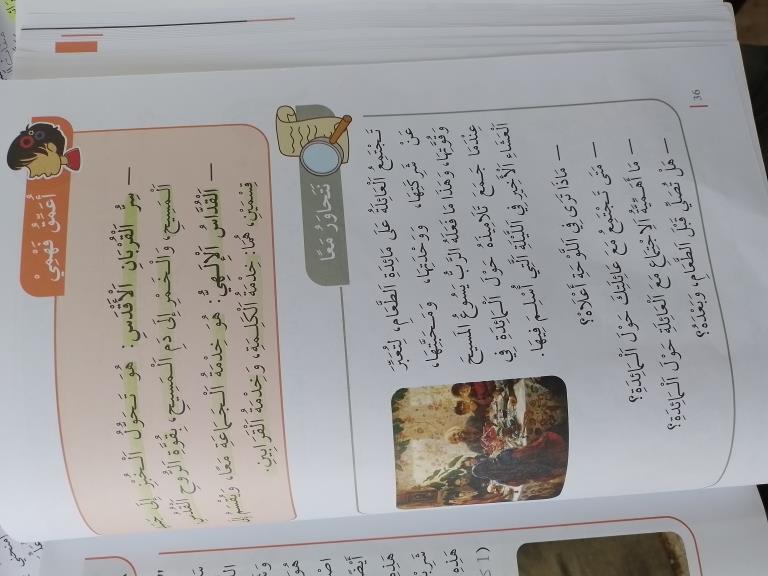 أُعَمِّقُ فَهْمِيْ
– سِرُّ الْقُرْبَانِ الْأَقْدَسِ: هُوَ تَحَوُّلُ الْخُبْزِ إِلَى
الْمَسِيْحِ، وَالْخَمْرِ إِلَى دَمِ الْمَسِيْحِ، بِقُوَّةِ الرُّوْحِ الْقُدُسِ
– الْقُدَّاسُ الْإِلٰهِيُّ: هُوَ خِدْمَةُ الْجَمَاعَةِ مَعًا، وَيُقْسَمُ إِلَى
قِسْمَيْنِ، هُمَا: خِدْمَةُ الْكَلِمَةِ، وَخِدْمَةُ الْقَرَابِيْنِ.
نَتَحَاوَرُ مَعًا
تَجْتَمِعُ الْعَائِلَةُ عَلَى مَائِدَةِ الطَّعَامِ، لِتُعَبِّرَ
عَنْ شَرِكَتِهَا، وَوَحْدَتِهَا، وَمَحَبَّتِهَا،
وَقُوَّتِهَا، وَهٰذَا مَا فَعَلَهُ الرَّبُّ يَسُوْعُ الْمَسِيْحُ
عِنْدَمَا جَمَعَ تَلَامِيْذَهُ حَوْلَ الْمَائِدَةِ فِي
الْعَشَاءِ الْأَخِيْرِ فِي اللَّيْلَةِ الَّتِي أُسْلِمَ فِيْهَا.
– مَاذَا تَرَى فِي اللَّوْحَةِ أَعْلَاهُ؟
– مَتَى تَجْتَمِعُ مَعَ عَائِلَتِكَ حَوْلَ الْمَائِدَةِ؟
– مَا أَهَمِّيَّةُ الِاجْتِمَاعِ مَعَ الْعَائِلَةِ حَوْلَ الْمَائِدَةِ؟
– هَلْ تُصَلِّي قَبْلَ الطَّعَامِ، وَبَعْدَهُ؟
36